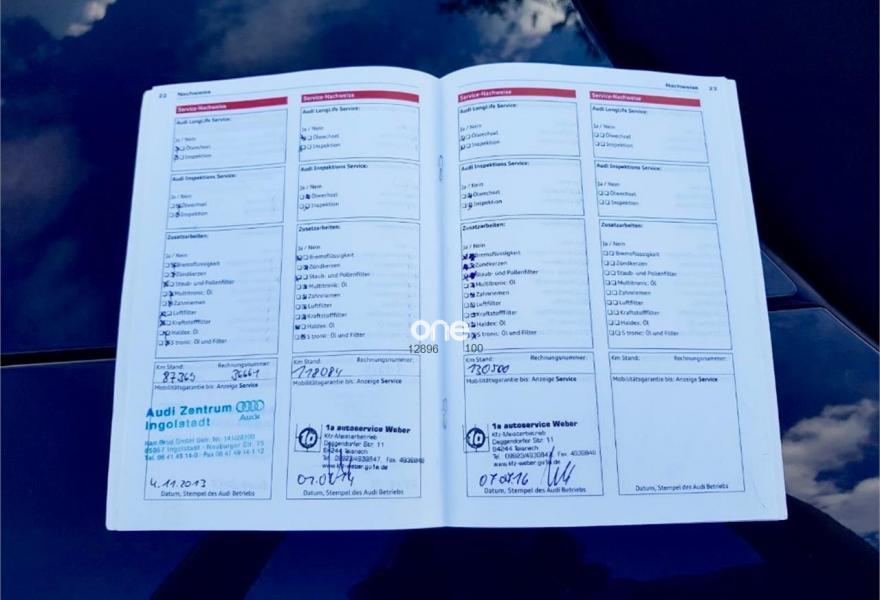 22 Nachweise
Service-Nachweise
Audi LongLife Service:
Ja / Nein
Ölwechsel
Inspektion
Audi Inspektions Service:
Ja / Nein
Ölwechsel
Inspektion
Zusatzarbeiten:
Ja / Nein
Bremsflüssigkeit
Zündkerzen
Staub- und Pollenfilter
Multitronic: Öl
Zahnriemen
Luftfilter
Kraftstofffilter
Haldex: Öl
S tronic: Öl und Filter
Km Stand: Rechnungsnummer:
87365 36661
Mobilitätsgarantie bis: Anzeige Service
Audi Zentrum
Ingolstadt
Audi
85057 Ingolstadt - Neuburger Str. 75
Tel. 08 41 49 14-0 - Fax 08 41 49 14-1 12
4.11.2013
Datum, Stempel des Audi Betriebs
Service-Nachweise
Audi LongLife Service:
Ja / Nein
Ölwechsel
Inspektion
Audi Inspektions Service:
Ja / Nein
Ölwechsel
Inspektion
Zusatzarbeiten:
Ja / Nein
Bremsflüssigkeit
Zündkerzen
Staub- und Pollenfilter
Multitronic: Öl
Zahnriemen
Luftfilter
Kraftstofffilter
Haldex: Öl
S tronic: Öl und Filter
Km Stand: Rechnungsnummer:
118084
Mobilitätsgarantie bis: Anzeige Service
1a autoservice Weber
Kfz-Meisterbetrieb
Deggendorfer Str. 11
94244 Teisnach
Tel. 09923/4939847, Fax 4939848
www.kfz-weber.go1a.de
Datum, Stempel des Audi Betriebs
Nachweise 23
Service-Nachweise
Audi LongLife Service:
Ja / Nein
Ölwechsel
Inspektion
Audi Inspektions Service:
Ja / Nein
Ölwechsel
Inspektion
Zusatzarbeiten:
Ja / Nein
Bremsflüssigkeit
Zündkerzen
Staub- und Pollenfilter
Multitronic: Öl
Zahnriemen
Luftfilter
Kraftstofffilter
Haldex: Öl
S tronic: Öl und Filter
Km Stand: Rechnungsnummer:
130500
Mobilitätsgarantie bis: Anzeige Service
1a autoservice Weber
Kfz-Meisterbetrieb
Deggendorfer Str. 11
94244 Teisnach
Tel. 09923/4939847, Fax 4939848
www.kfz-weber.go1a.de
Datum, Stempel des Audi Betriebs
Service-Nachweise
Audi LongLife Service:
Ja / Nein
Ölwechsel
Inspektion
Audi Inspektions Service:
Ja / Nein
Ölwechsel
Inspektion
Zusatzarbeiten:
Ja / Nein
Bremsflüssigkeit
Zündkerzen
Staub- und Pollenfilter
Multitronic: Öl
Zahnriemen
Luftfilter
Kraftstofffilter
Haldex: Öl
S tronic: Öl und Filter
Km Stand: Rechnungsnummer:
Mobilitätsgarantie bis: Anzeige Service
Datum, Stempel des Audi Betriebs
one
12896 100